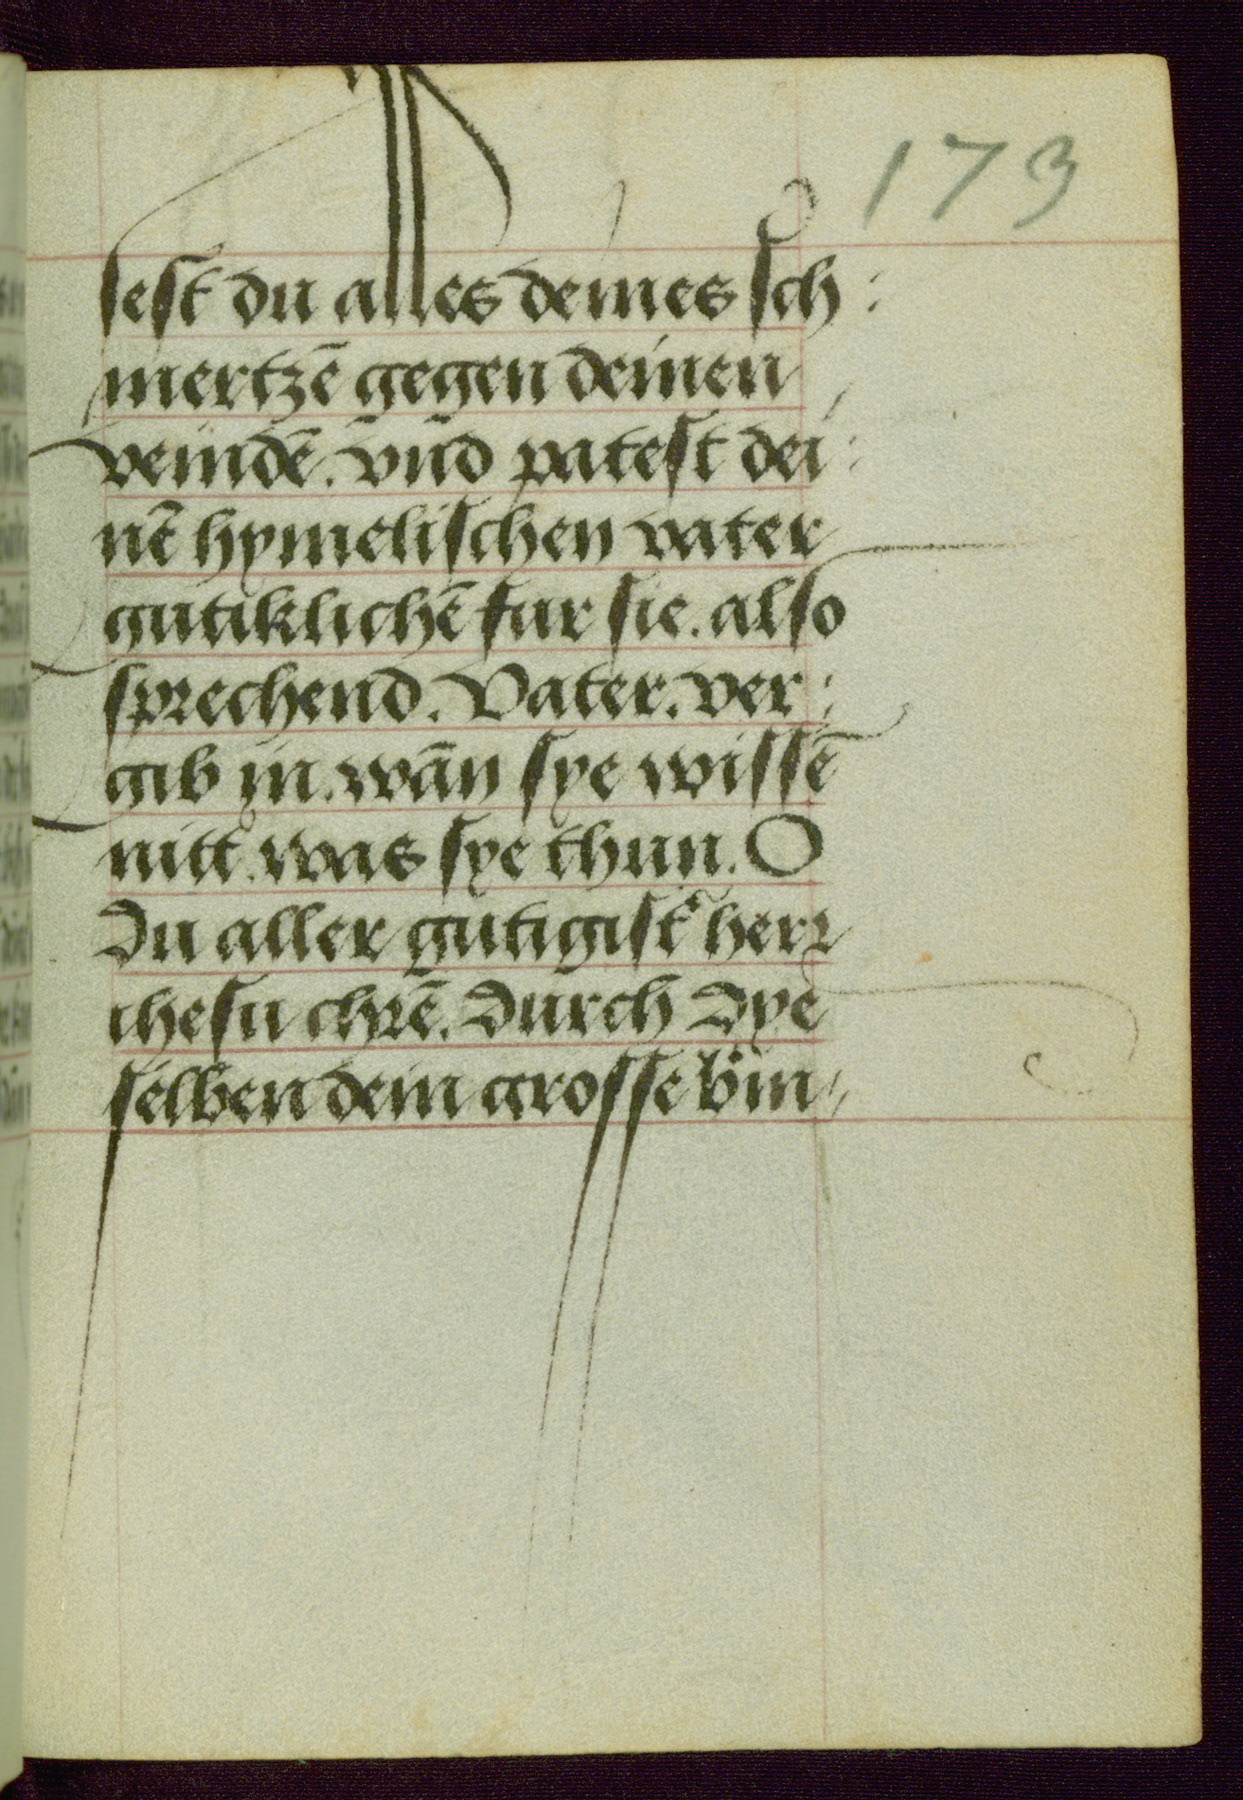 173
sest du alles deines sch:
mertzē gegen deinen
veindē. vnd patest dei:
nē hymelischen vater
gutiklichē fur sie. also
sprechend. Vater. ver:
gib in. wān sye wissē
nitt. was sye thun. O
Du aller gutigist herr
ihesu chrē. Durch Dye
selben dein grosse